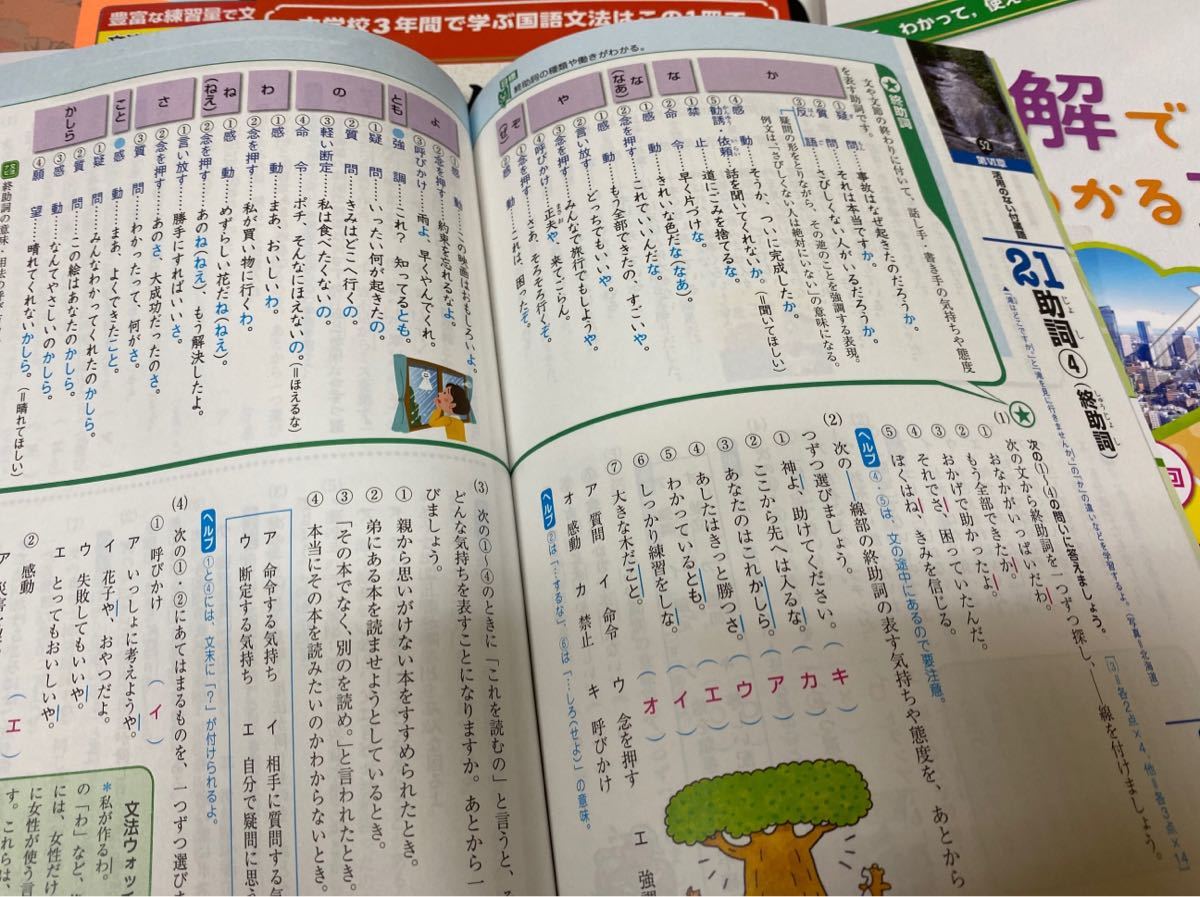 豊富な練習量で文
中学校3年間で学ぶ国語文法はこの1冊で
わかって,使え
解で
かる
52
第Ⅵ章
活用のない付属語
21 助詞④(終助詞)
じょ し
しゅうじょし
▲「滝はどこですか。」と「滝を見に行きませんか。」の「か」の違いなどを学習するよ。(写真=北海道)
目標 終助詞の種類や働きがわかる。
★終助詞
文や文節の終わりに付いて、話し手・書き手の気持ちや態度
を表す助詞です。
か
①疑 問…事故はなぜ起きたのだろうか。
②質 問…それは本当ですか。
③反 語…さびしくない人がいるだろうか。
疑問の形をとりながら、その逆のことを強調する表現。
例文は「さびしくない人は絶対にいない」の意味になる。
④感 動…そうか、ついに完成したか。
⑤勧誘・依頼…話を聞いてくれないか。(=聞いてほしい)
な
①禁 止…道にごみを捨てるな。
②命 令…早く片づけな。
な(なあ)
①感 動…きれいな色だな(なあ)。
②念を押す…これでいいんだな。
や
①感 動…もう全部できたの、すごいや。
②言い放す…どっちでもいいや。
③念を押す…みんなで旅行でもしようや。
④呼びかけ…正夫や、来てごらん。
ぞ(ぜ)
①念を押す…さあ、そろそろ行くぞ。
②感 動…これは、困ったぞ。
よ
①感 動…この映画はおもしろいよ。
②念を押す…約束を忘れるなよ。
③呼びかけ…雨よ、早くやんでくれ。
とも
●強 調…これ? 知ってるとも。
の
①疑 問…いったい何が起きたの。
②質 問…きみはどこへ行くの。
③軽い断定…私は食べたくないの。
④命 令…ポチ、そんなにほえないの。(=ほえるな)
わ
①感 動…まあ、おいしいわ。
②念を押す…私が買い物に行くわ。
ね(ねえ)
①感 動…めずらしい花だね(ねえ)。
②念を押す…あのね(ねえ)、もう解決したよ。
さ
①言い放す…勝手にすればいいさ。
②念を押す…あのさ、大成功だったのさ。
③質 問…わかったって、何がさ。
こと
●感 動…まあ、よくできたこと。
かしら
①疑 問…みんなわかってくれたのかしら。
②質 問…この絵はあなたのかしら。
③感 動…なんてやさしいのかしら。
④願 望…晴れてくれないかしら。(=晴れてほしい)
終助詞の意味・用法の
(1) 次の(1)~(4)の問いに答えましょう。
[(3)=各2点×4,他=各3点×14]
次の文から終助詞を一つずつ探し、――線を付けましょう。
① おなかがいっぱいだわ。
② もう全部できたか。
③ おかげで助かったよ。
④ それでさ、困っていたんだ。
⑤ ぼくはね、きみを信じる。
ヘルプ ④・⑤は、文の途中にあるので要注意。
(2) 次の――線部の終助詞の表す気持ちや態度を、あとから
つずつ選びましょう。
① 神よ、助けてください。(キ)
② ここから先へは入るな。(カ)
③ あなたのはこれかしら。(ア)
④ あしたはきっと勝つさ。(ウ)
⑤ わかっているとも。(エ)
⑥ しっかり練習をしな。(イ)
⑦ 大きな木だこと。(オ)
ア 質問 イ 命令 ウ 念を押す エ 強調
オ 感動 カ 禁止 キ 呼びかけ
ヘルプ ②は「…するな」、⑥は「…しろ(せよ)」の意味。
(3) 次の①~④のときに「これを読むの」と言うと、
どんな気持ちを表すことになりますか。あとから一
びましょう。
① 親から思いがけない本をすすめられたとき。
② 弟にある本を読ませようとしているとき。
③「その本でなく、別のを読め。」と言われたとき。
④ 本当にその本を読みたいのかわからないとき。
ア 命令する気持ち イ 相手に質問する気
ウ 断定する気持ち エ 自分で疑問に思
ヘルプ ①と④には、文末に「?」が付けられるよ。
(4) 次の①・②にあてはまるものを、一つずつ選び
① 呼びかけ (イ)
ア いっしょに考えようや。
イ 花子や、おやつだよ。
ウ 失敗してもいいや。
エ とってもおいしいや。
② 感動 (エ)
文法ウォッ
*私が作るわ。
の「わ」など、
には、女性だけ
に女性が使う言
す。これらは、